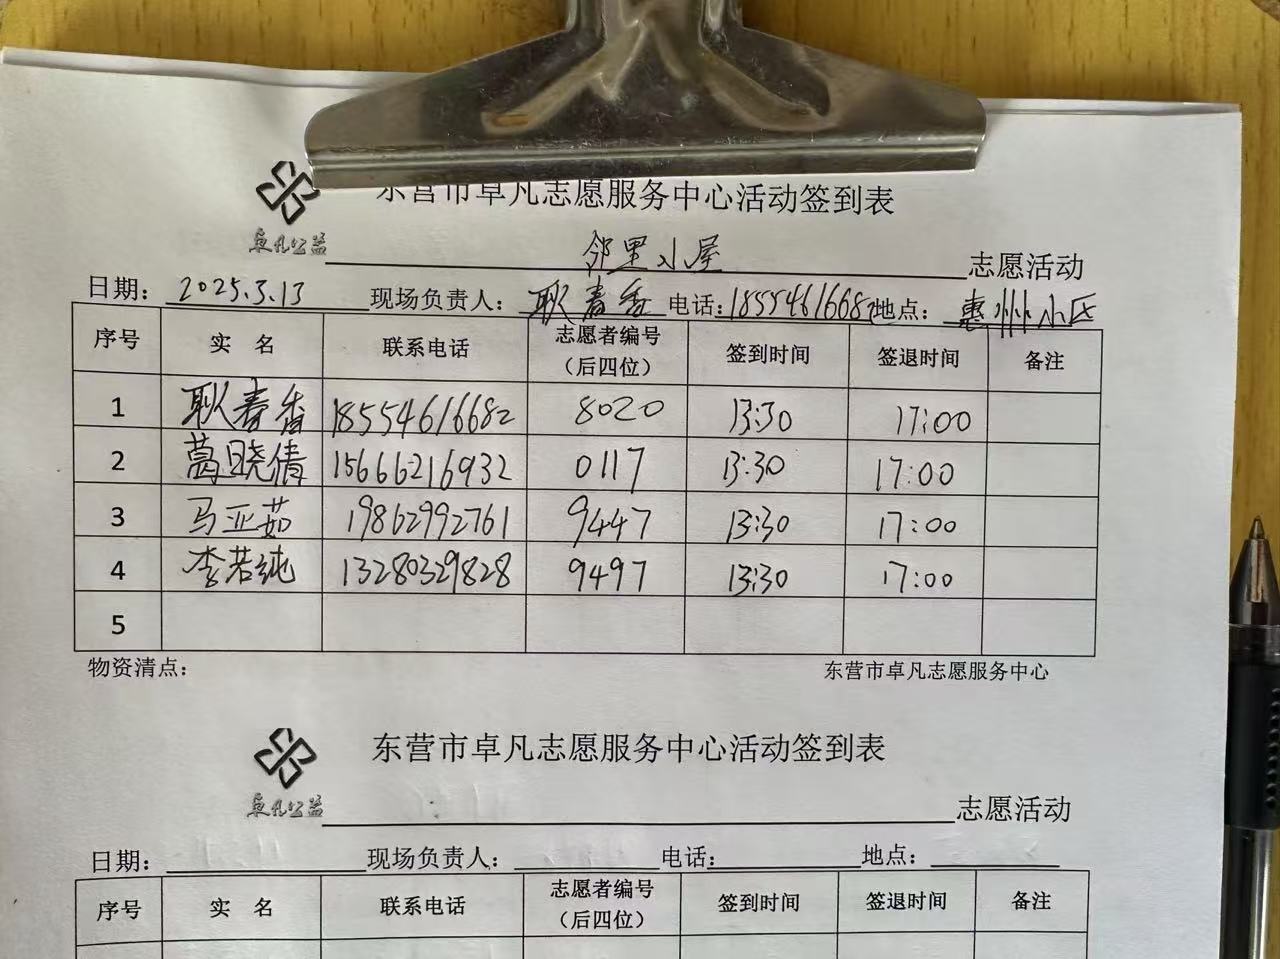 东营市卓凡志愿服务中心活动签到表
卓凡公益
邻里小屋 志愿活动
日期: 2025.3.13 现场负责人: 耿春香 电话: 18554616682 地点: 惠州小区
序号 实 名 联系电话 志愿者编号（后四位） 签到时间 签退时间 备注
1 耿春香 18554616682 8020 13:30 17:00
2 葛晓倩 15666216932 0117 13:30 17:00
3 马亚茹 19862992761 9447 13:30 17:00
4 李若纯 13280329828 9497 13:30 17:00
5
物资清点: 东营市卓凡志愿服务中心
东营市卓凡志愿服务中心活动签到表
卓凡公益
志愿活动
日期: 现场负责人: 电话: 地点:
序号 实 名 联系电话 志愿者编号（后四位） 签到时间 签退时间 备注